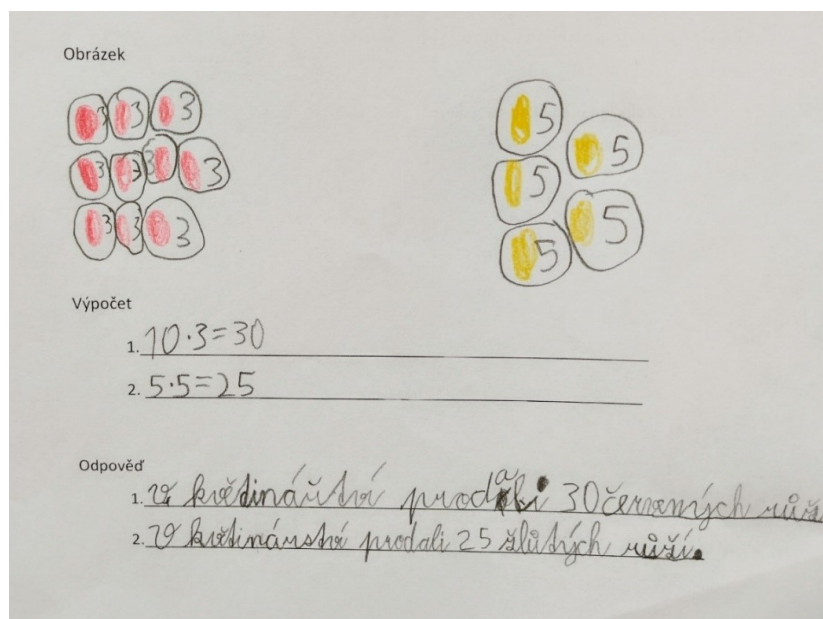 Obrázek
3 3 3
3 3 3 3
3 3 3
5
5
5
5
5
Výpočet
1. 10·3=30
2. 5·5=25
Odpověď
1. V květinářství prodali 30 červených růž
2. V květinářství prodali 25 žlutých růží.